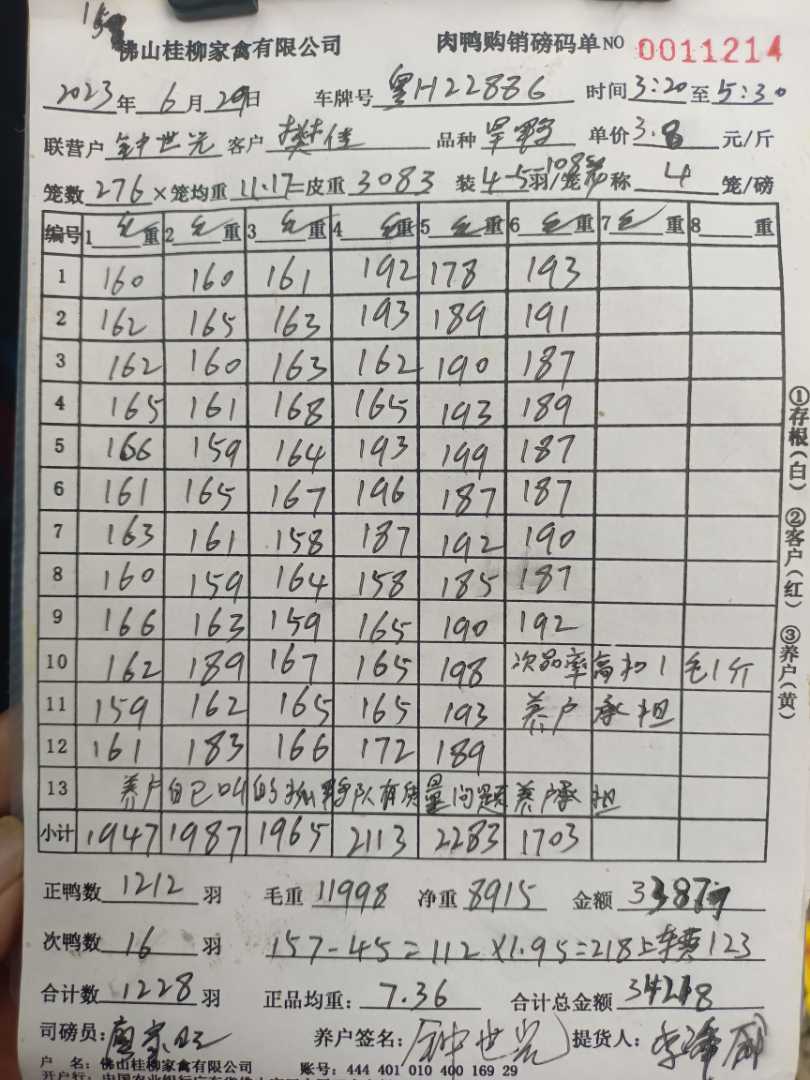 佛山桂柳家禽有限公司 肉鸭购销磅码单 NO 0011214
2023年 6月 29日 车牌号 粤H22886 时间 3:20 至 5:30
联营户 钟世光 客户 樊佳 品种 单价 3.8 元/斤
笼数 276 × 笼均重 11.17 = 皮重 3083 装 4-5 羽/笼 称 4 笼/磅
编号 1 毛重 2 毛重 3 毛重 4 毛重 5 毛重 6 毛重 7 毛重 8 重
1 160 160 161 192 178 193
2 162 165 163 193 189 191
3 162 160 163 162 190 187
4 165 161 168 165 193 189
5 166 159 164 193 199 187
6 161 165 167 196 187 187
7 163 161 158 187 192 190
8 160 159 164 158 185 187
9 166 163 159 165 190 192
10 162 189 167 165 198 次品率高扣1毛1斤
11 159 162 165 165 193 养户承担
12 161 183 166 172 189
13 养户自己叫的抓鸭队有质量问题养户承担
小计 1947 1987 1965 2113 2283 1703
正鸭数 1212 羽 毛重 11998 净重 8915 金额
次鸭数 16 羽 157-45=112×1.95=218 上车费123
合计数 1228 羽 正品均重: 7.36 合计总金额 34218
司磅员: 养户签名: 钟世光 提货人:
户 名: 佛山桂柳家禽有限公司 账号: 444 401 010 400 169 29
①存根(白) ②客户(红) ③养户(黄)